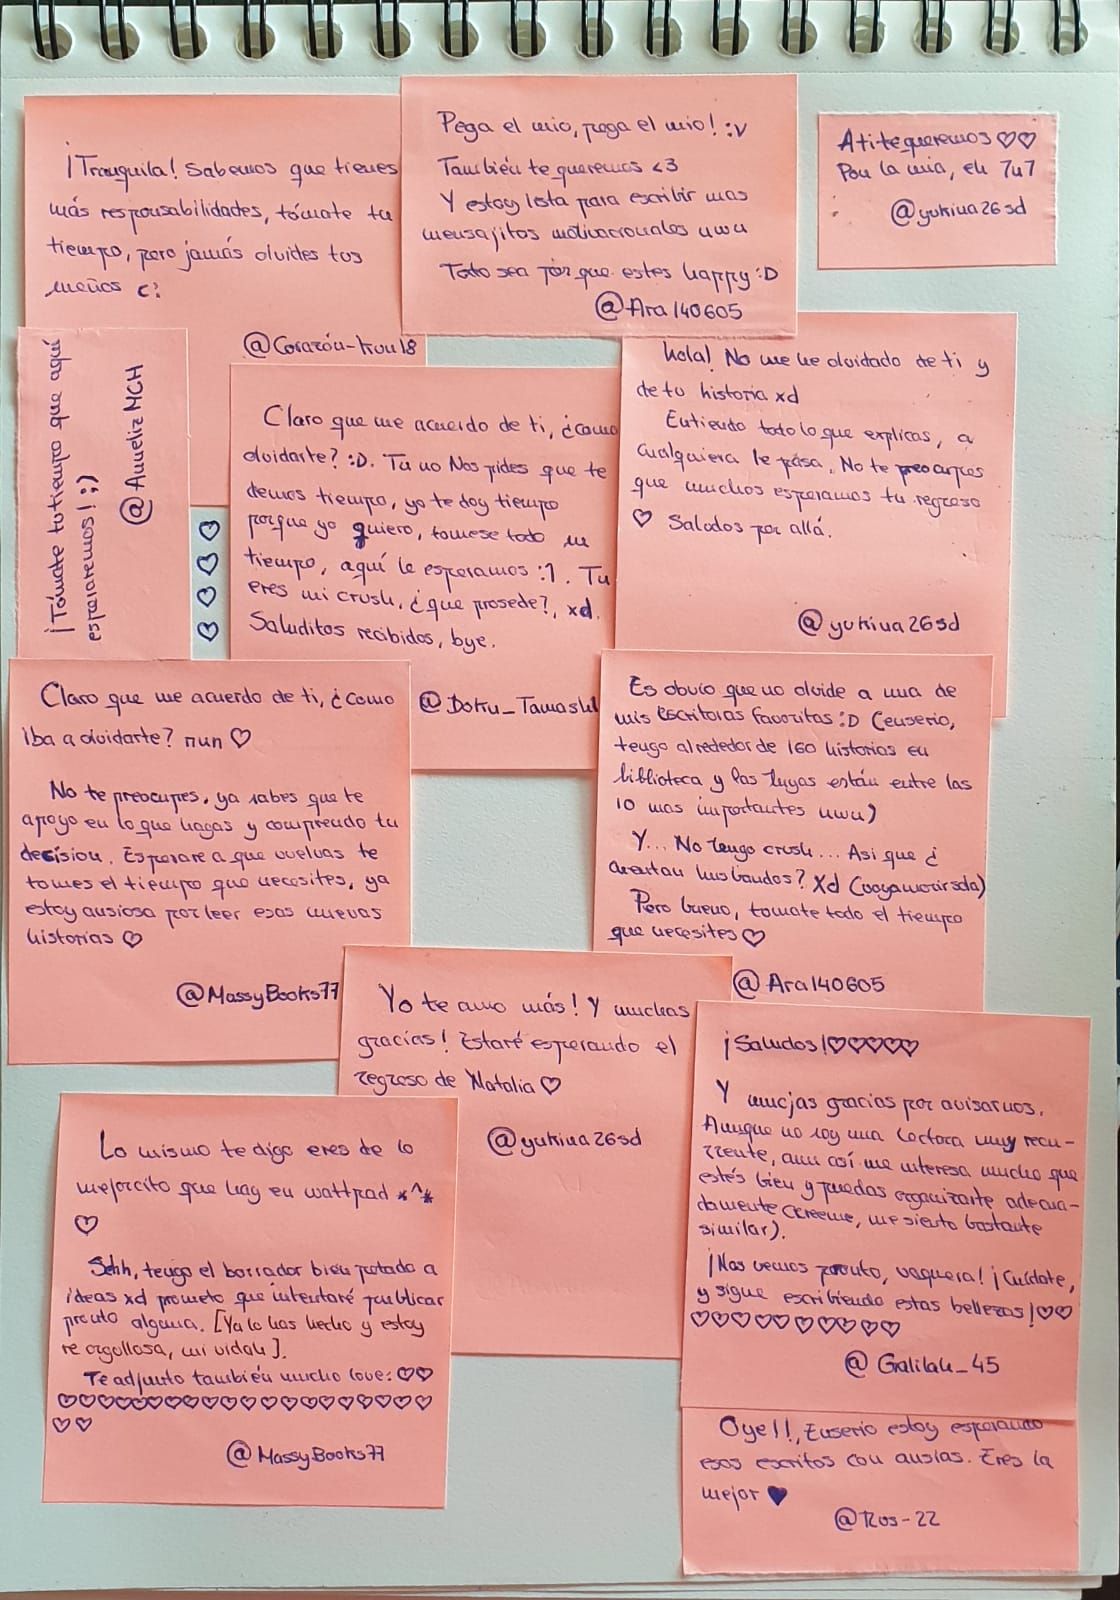 ¡Tranquila! Sabemos que tienes
más responsabilidades, tómate tu
tiempo, pero jamás olvides tus
sueños c:
@Corazón-Kou18
Pega el mio, pega el mio! :v
También te queremos <3
Y estoy lista para escribir mas
mensajitos motivacionales uwu
Todo sea por que estes happy :D
@Ara140605
A ti te queremos ♡♡
Pon la mia, eh 7u7
@yukina26sd
¡Tómate tu tiempo que aquí
esperaremos! ;)
@AnnelizMCH
♡♡♡♡
Claro que me acuerdo de ti, ¿como
olvidarte? :D. Tu no Nos pides que te
demos tiempo, yo te doy tiempo
porque yo quiero, tomese todo su
tiempo, aquí le esperamos :1. Tu
eres mi crush, ¿que prosede?, xd.
Saluditos recibidos, bye.
@Doku_Tamashi
hola! No me he olvidado de ti y
de tu historia xd
Entiendo todo lo que explicas, a
cualquiera le pasa. No te preocupes
que muchos esperamos tu regreso
♡ Saludos por allá.
@yukina26sd
Claro que me acuerdo de ti, ¿como
iba a olvidarte? nun ♡
No te preocupes, ya sabes que te
apoyo en lo que hagas y comprendo tu
decisión. Esperare a que vuelvas te
tomes el tiempo que necesites, ya
estoy ansiosa por leer esas nuevas
historias ♡
@MassyBooks77
Es obvio que no olvide a una de
mis escritoras favoritas :D (enserio,
tengo alrededor de 160 historias en
biblioteca y las tuyas están entre las
10 mas importantes uwu)
Y... No tengo crush... Asi que ¿
cuentan husbandos? Xd
Pero bueno, tomate todo el tiempo
que necesites ♡
@Ara140605
Yo te amo más! Y muchas
gracias! Estaré esperando el
regreso de Natalia ♡
@yukina26sd
¡Saludos!♡♡♡♡♡
Y mucjas gracias por avisarnos.
Aunque no soy una lectora muy recu-
rrente, aun así me interesa mucho que
estés bien y puedas organizarte adecua-
damente (creeme, me siento bastante
similar).
¡Nos vemos pronto, vaquera! ¡Cuídate,
y sigue escribiendo estas bellezas!♡♡
♡♡♡♡♡♡♡♡♡♡
@Galilah_45
Lo mismo te digo eres de lo
mejorcito que hay en wattpad *^*
♡
Sehh, tengo el borrador bien potado a
ideas xd prometo que intentaré publicar
pronto alguna. [Ya lo has hecho y estoy
re orgullosa, mi vidah].
Te adjunto también mucho love: ♡♡
♡♡♡♡♡♡♡♡♡♡♡♡♡♡♡♡♡♡♡♡
♡♡
@MassyBooks77
Oye!!, Enserio estoy esperando
esos escritos con ansias. Eres la
mejor ♥
@Ros-22